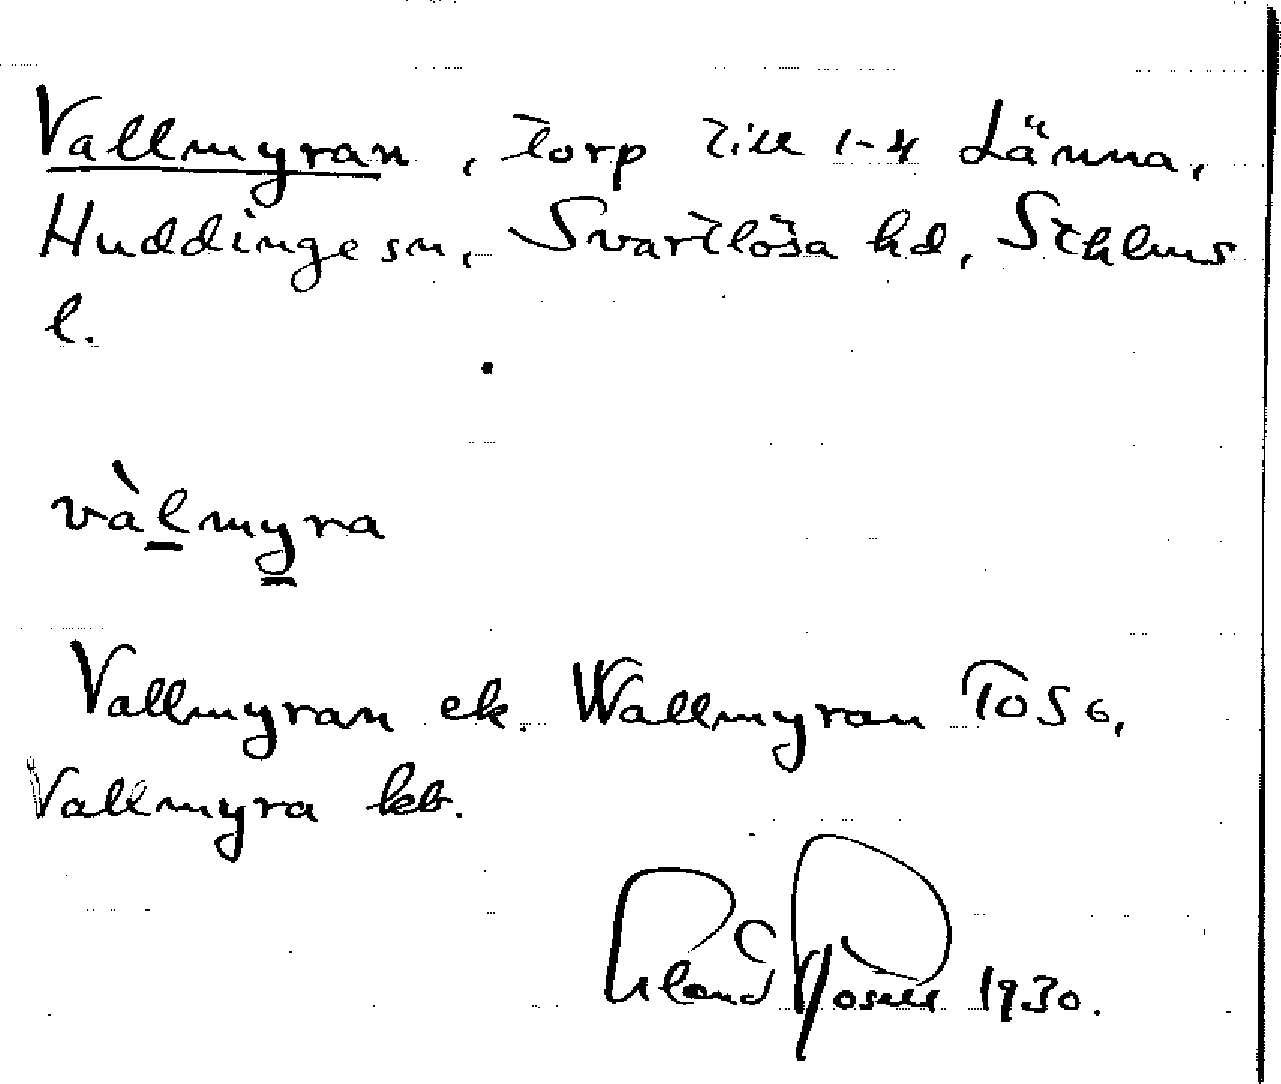 Vallmyran, torp till 1-4 Länna,
Huddinge sn, Svartlösa hd, Sthlms
l.
vàlmyra
Vallmyran ek. Wallmyran To SG,
Vallmyra kb.
Erland Rosell 1930.